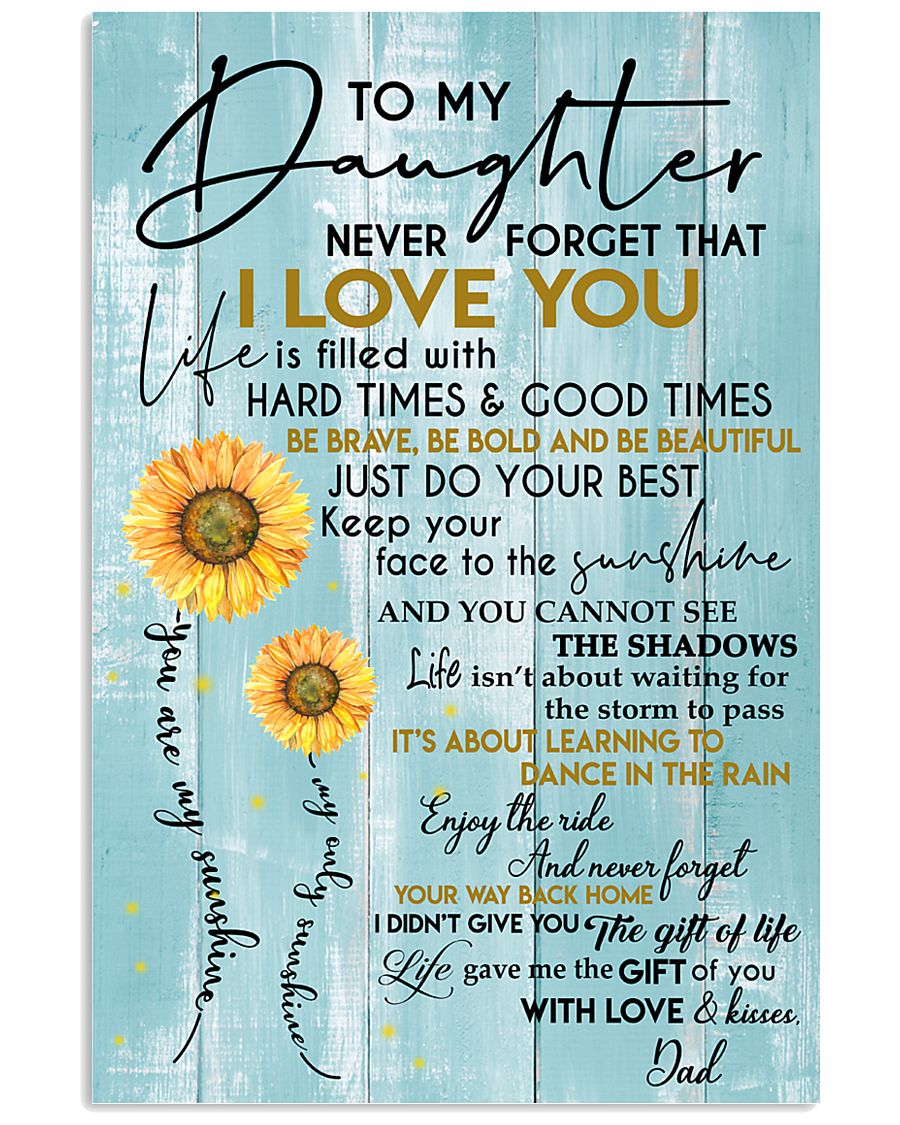 TO MY
Daughter
NEVER FORGET THAT
I LOVE YOU
Life is filled with
HARD TIMES & GOOD TIMES
BE BRAVE, BE BOLD AND BE BEAUTIFUL
JUST DO YOUR BEST
Keep your
face to the sunshine
AND YOU CANNOT SEE
THE SHADOWS
Life isn't about waiting for
the storm to pass
IT'S ABOUT LEARNING TO
DANCE IN THE RAIN
Enjoy the ride
And never forget
YOUR WAY BACK HOME
I DIDN'T GIVE YOU The gift of life
Life gave me the GIFT of you
WITH LOVE & kisses,
Dad
you are my sunshine
my only sunshine